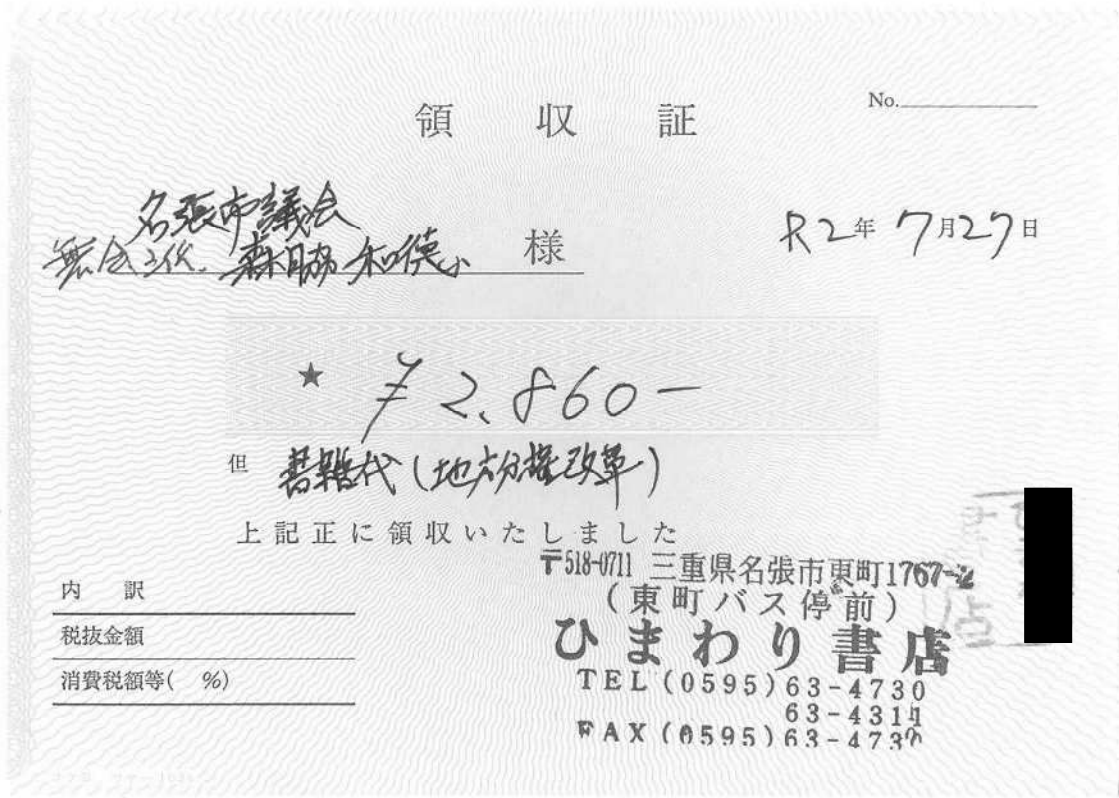 領収証
No.
名張市議会
無会派 森脇和徳 様
R2年 7月27日
★ ¥2,860-
但 書籍代(地方分権改革)
上記正に領収いたしました
〒518-0711 三重県名張市東町1767-2
(東町バス停前)
ひまわり書店
TEL(0595)63-4730
63-4311
FAX(0595)63-4730
内訳
税抜金額
消費税額等( %)